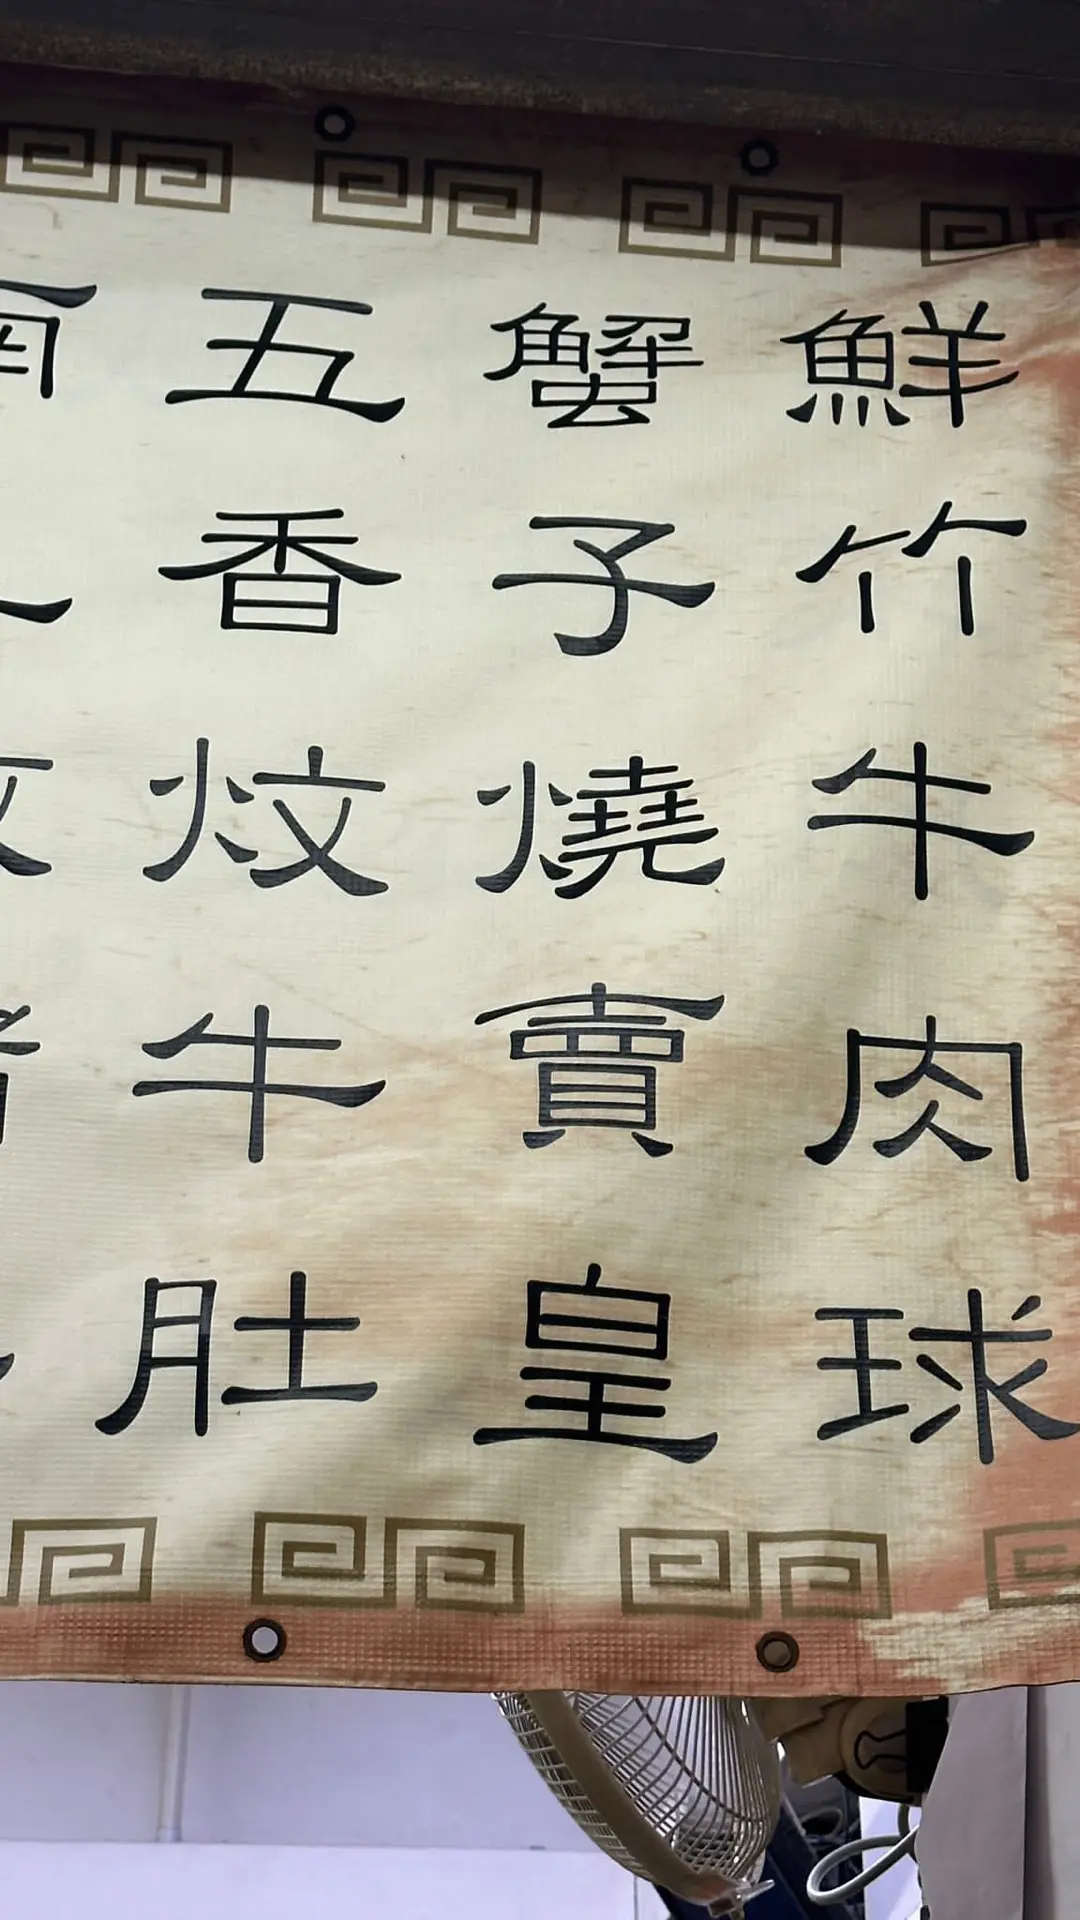 鮮竹牛肉球
蟹子燒賣皇
五香炆牛肚